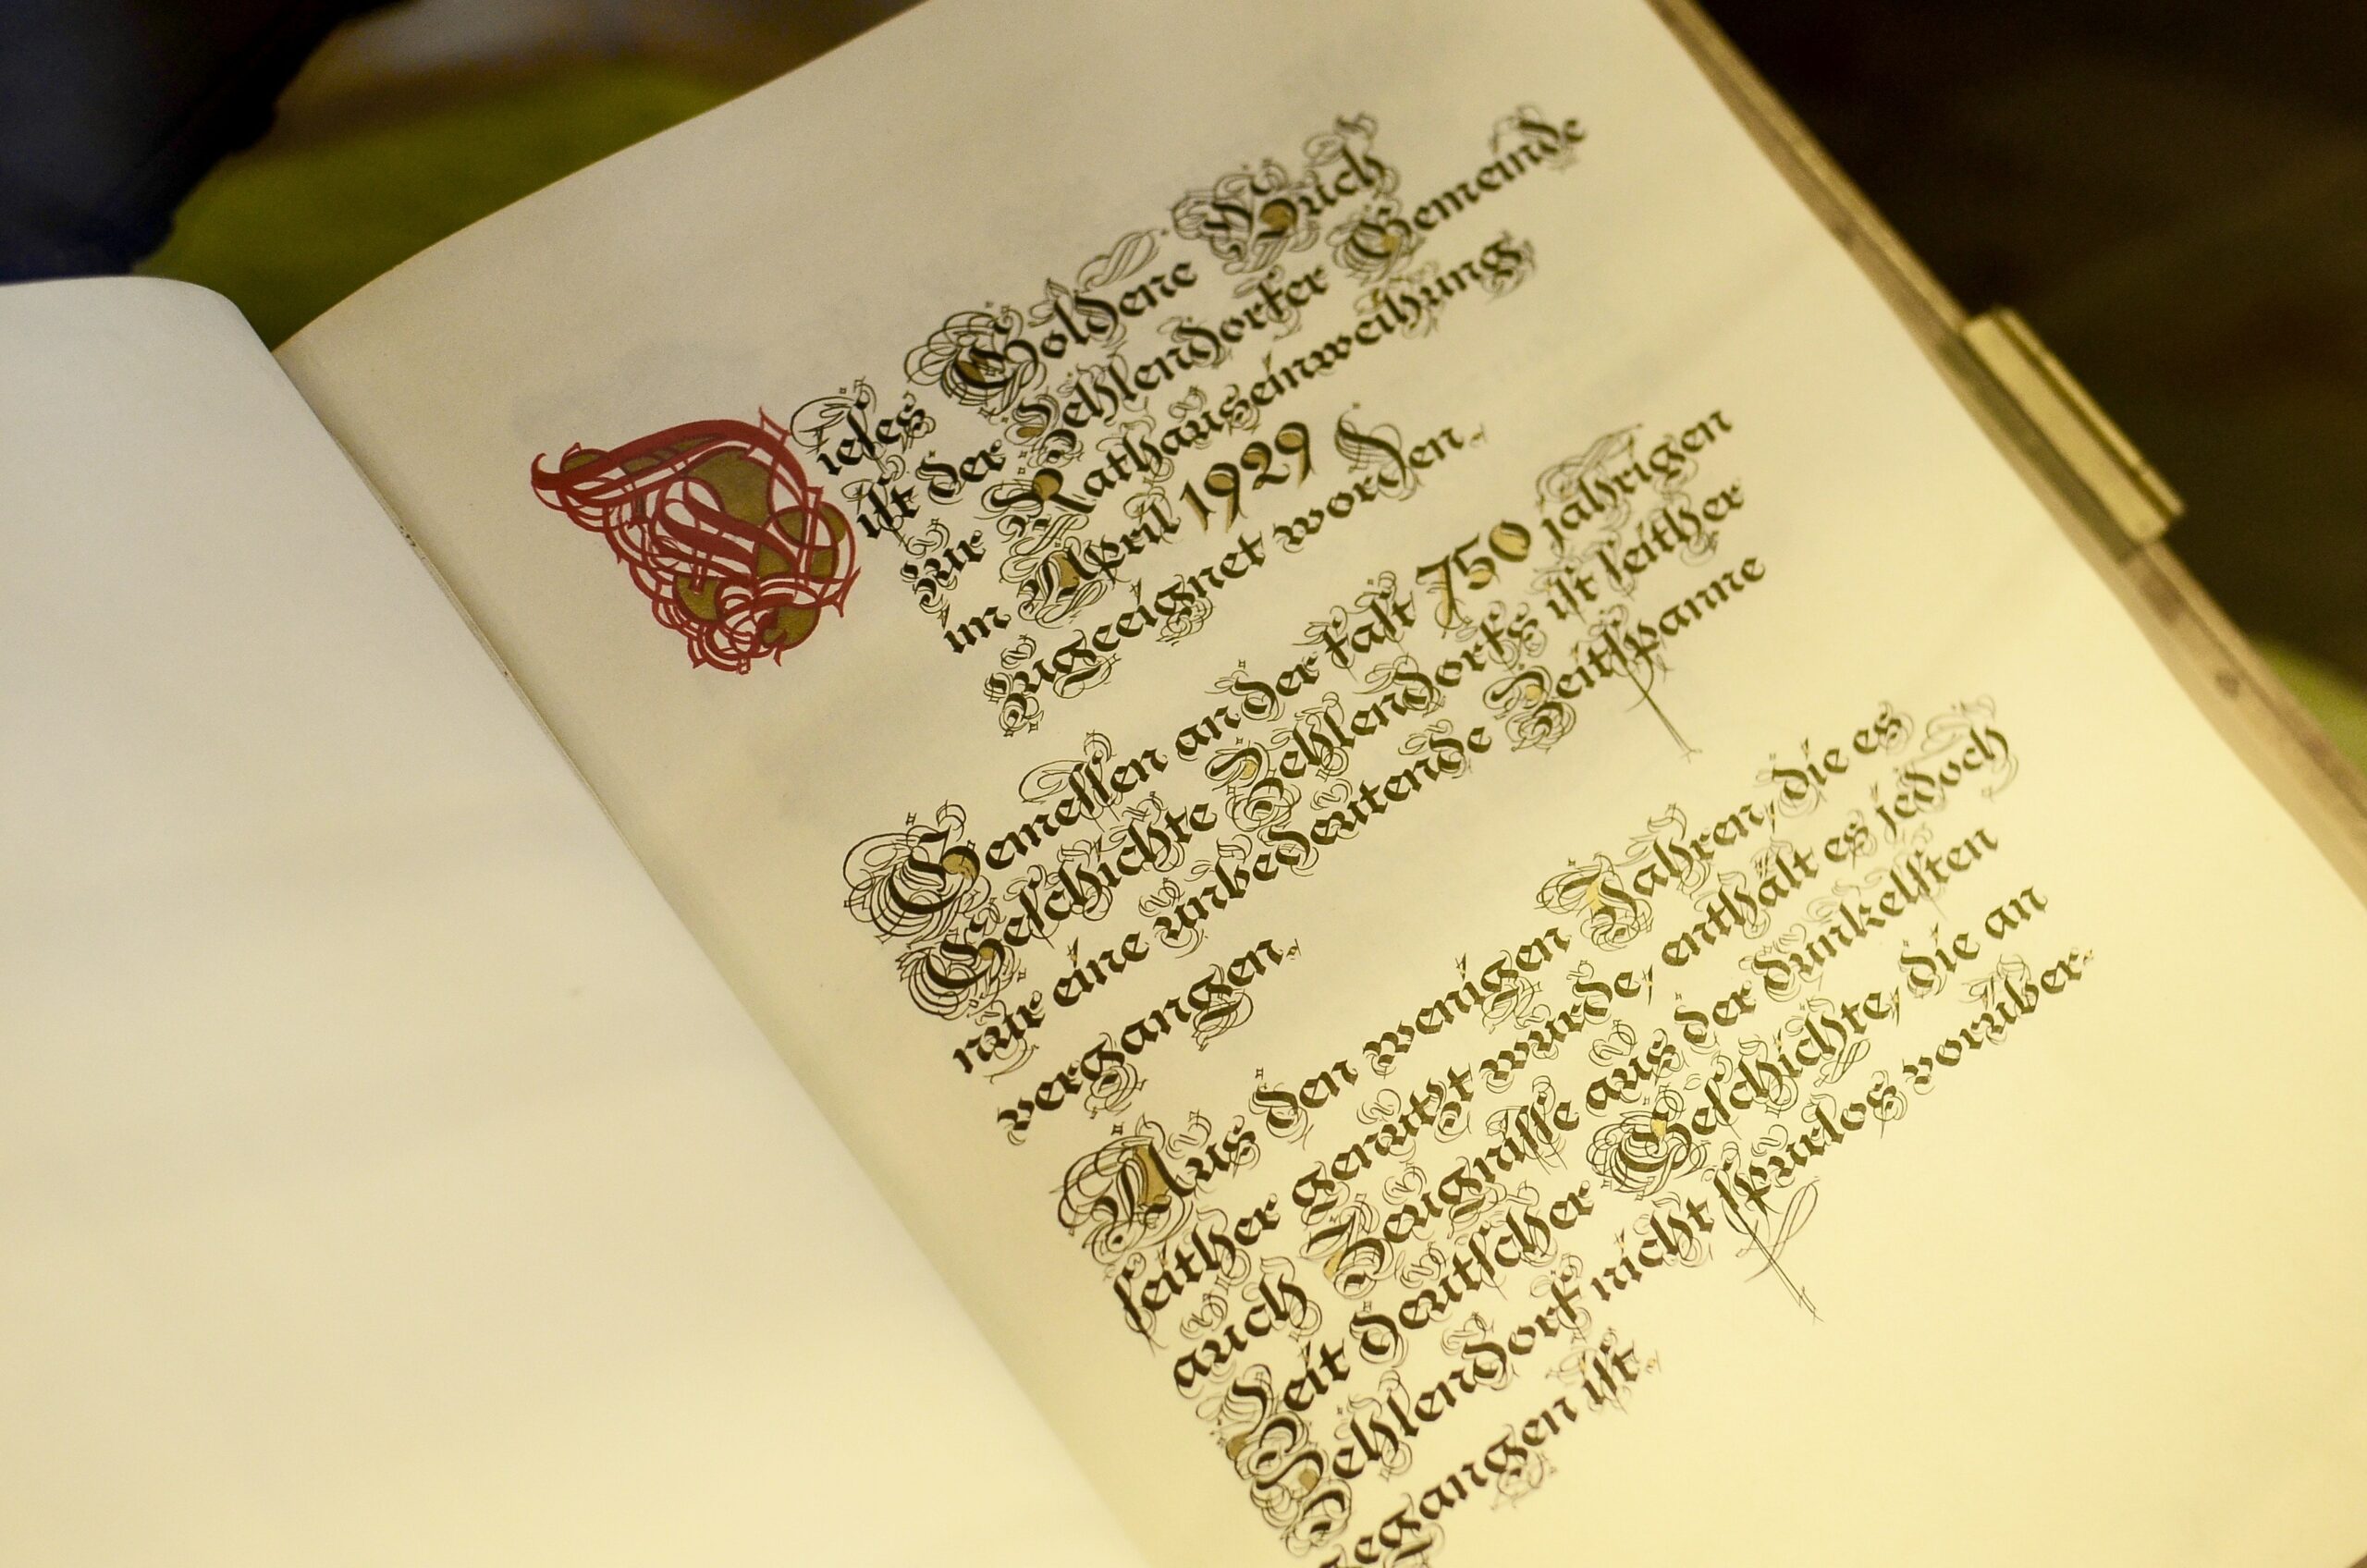 Dieſes Goldene Buch
iſt der Zehlendorfer Gemeinde
zur Rathauseinweihung
im April 1929
zugeeignet worden.
Gemeſſen an der faſt 750 jährigen
Geſchichte Zehlendorfs iſt ſeither
nur eine unbedeutende Zeitſpanne
vergangen.
Aus den wenigen Jahren, die es
ſeither genutzt wurde, enthält es jedoch
auch Zeugniſſe aus der dunkelſten
Zeit deutſcher Geſchichte, die an
Zehlendorf nicht ſpurlos vorüber
gegangen iſt.